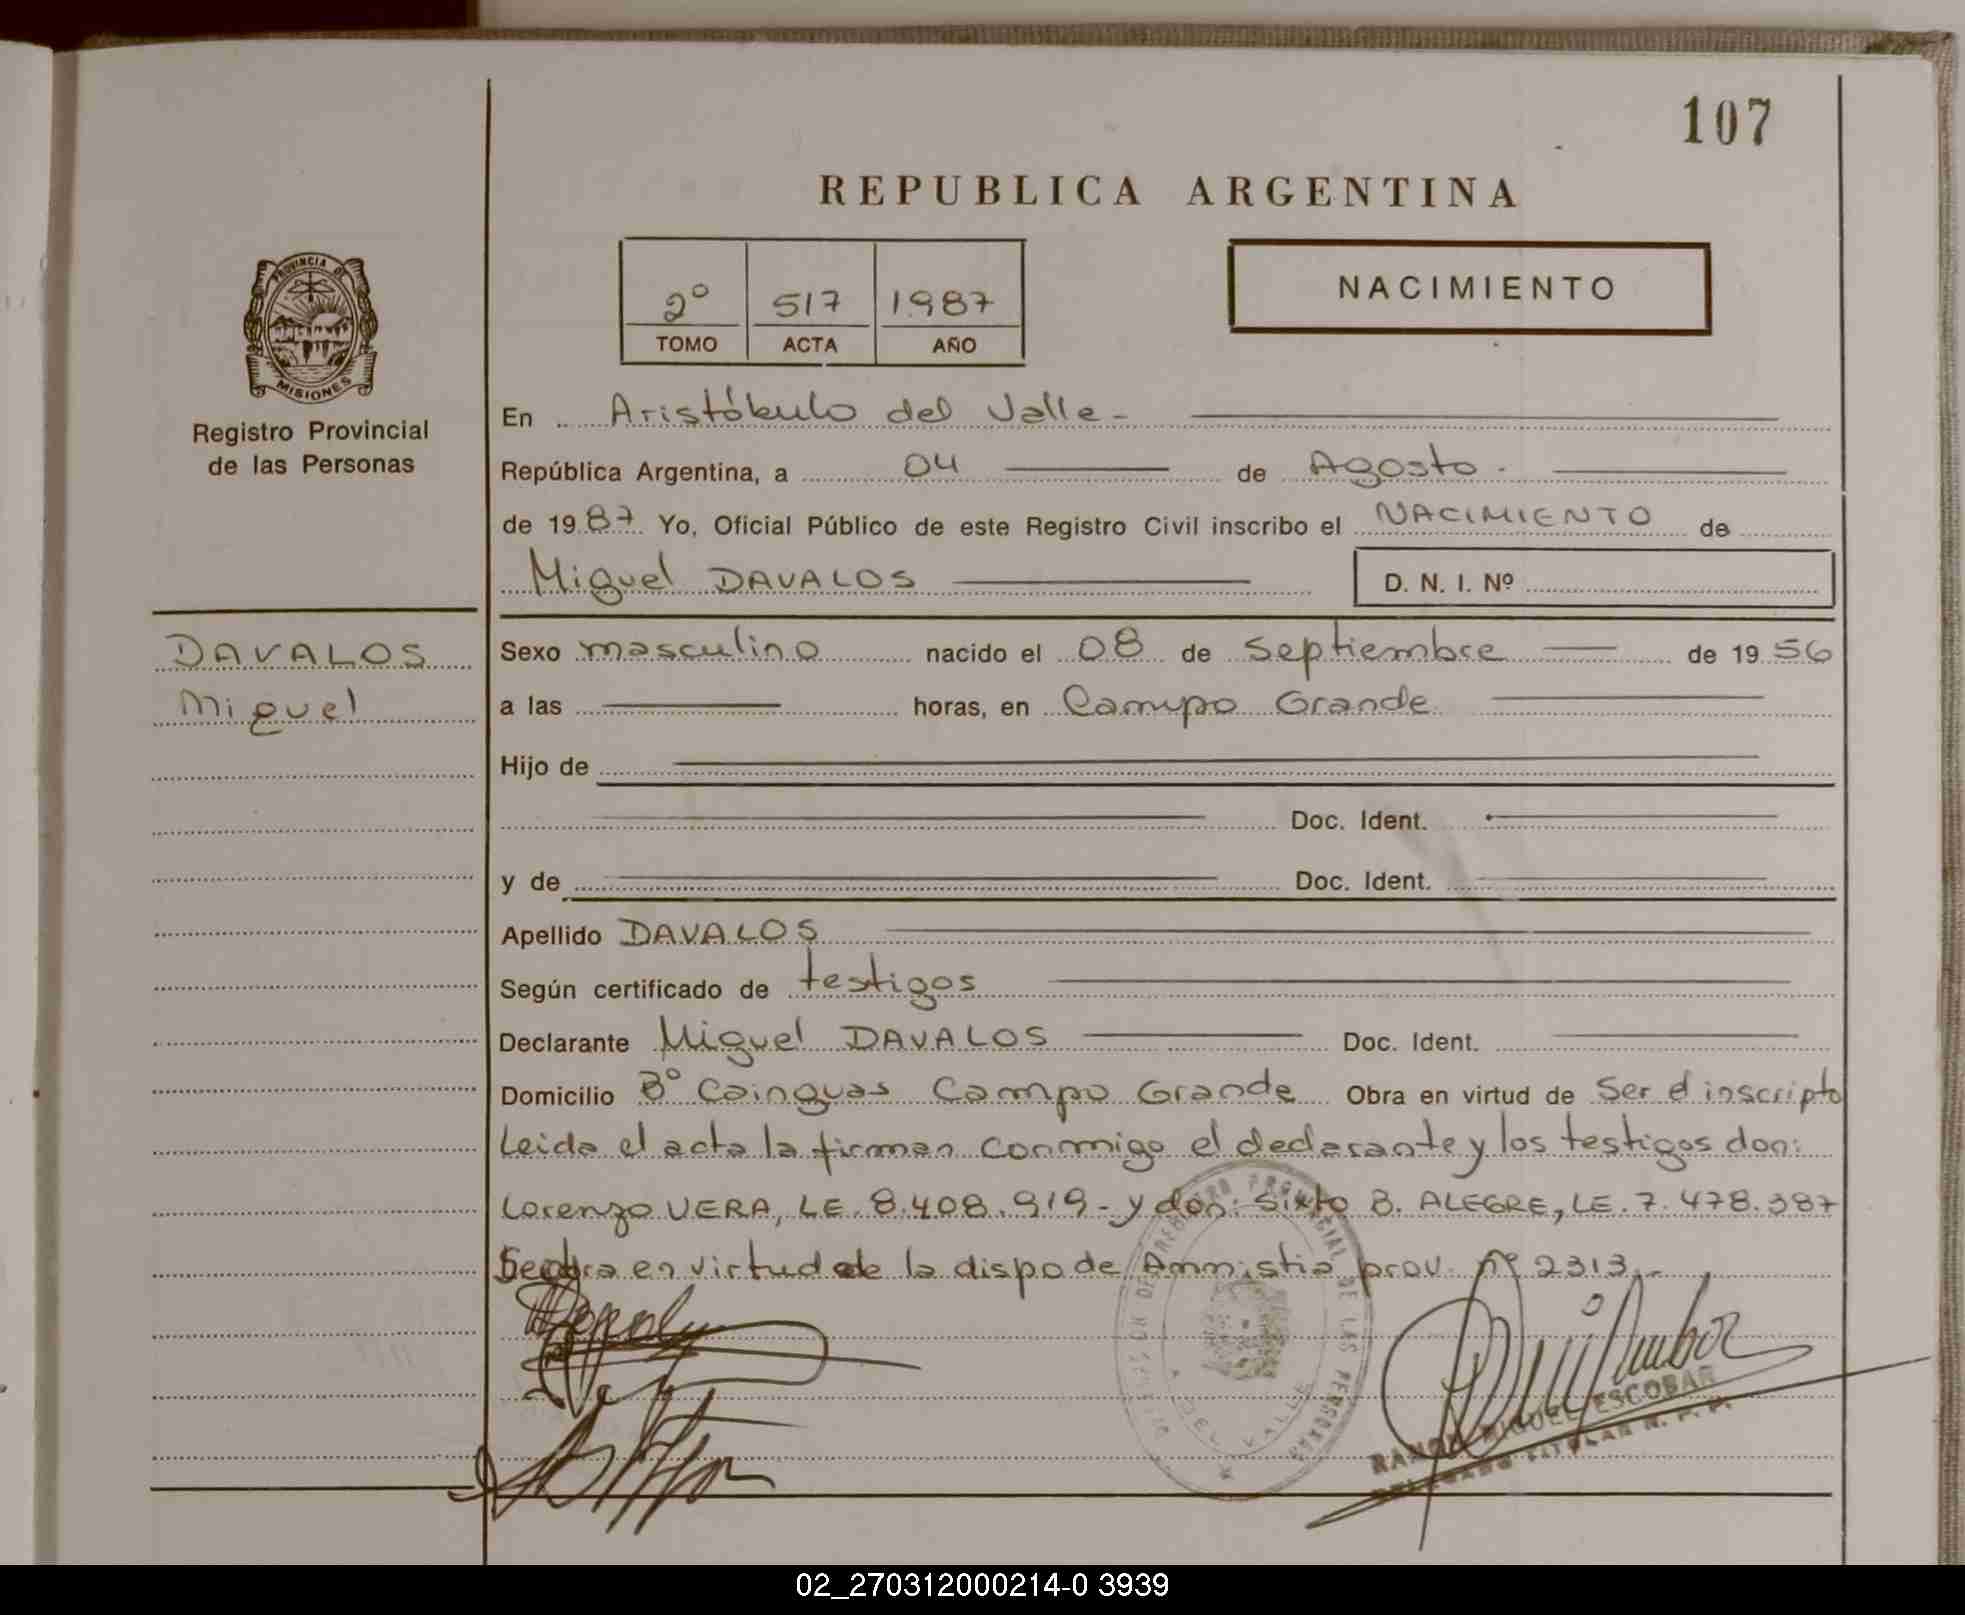 107
REPUBLICA ARGENTINA
2º 517 1987
TOMO ACTA AÑO
NACIMIENTO
PROVINCIA DE
MISIONES
Registro Provincial
de las Personas
En Aristóbulo del Valle-
República Argentina, a 04 de Agosto.
de 1987 Yo, Oficial Público de este Registro Civil inscribo el NACIMIENTO de
Miguel DAVALOS D. N. I. Nº
DAVALOS
Miguel
Sexo masculino nacido el 08 de Septiembre de 1956
a las horas, en Campo Grande
Hijo de
Doc. Ident.
y de Doc. Ident.
Apellido DAVALOS
Según certificado de testigos
Declarante Miguel DAVALOS Doc. Ident.
Domicilio Bº Cainguas Campo Grande Obra en virtud de Ser el inscripto
Leida el acta la firman conmigo el declarante y los testigos don:
Lorenzo VERA, LE. 8.408.919- y don: Sixto B. ALEGRE, LE. 7.478.387
Se obra en virtud de la dispo de Amnistia prov. nº 2313.-
PROVINCIAL DE LAS PERSONAS
DEL VALLE
RAMON MIGUEL ESCOBAR
DELEGADO TITULAR R. P. P.
02_270312000214-0 3939